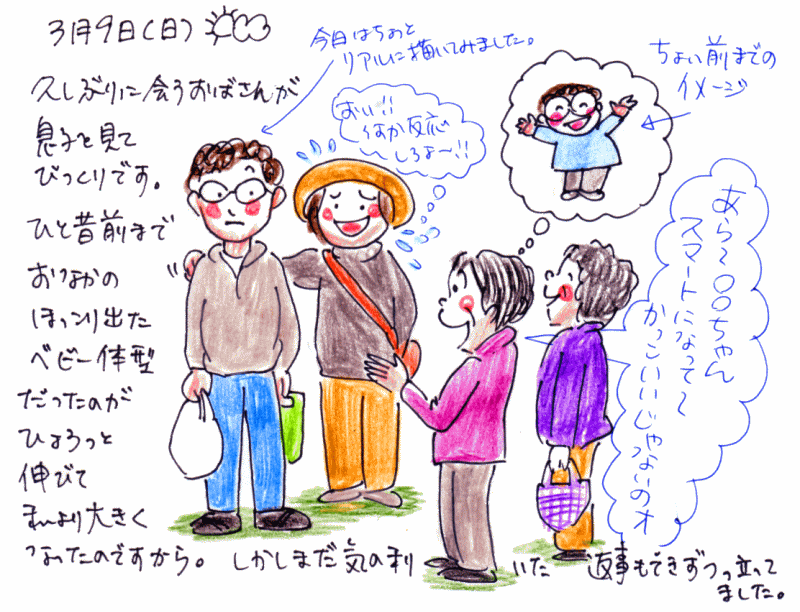 3月9日(日)
今日はちょっと
リアルに描いてみました。
ちょい前までの
イメージ
久しぶりに会うおばさんが
息子を見て
びっくりです。
ひと昔前まで
おなかの
ほっこり出た
ベビー体型
だったのが
ひょろっと
伸びて
私より大きく
なったのですから。しかしまだ気の利いた 返事もできずつっ立って
ました。
おい!!
なんか反応
しろよ〜!!
あら〜○○ちゃん
スマートになって〜
かっこいいじゃないのオ